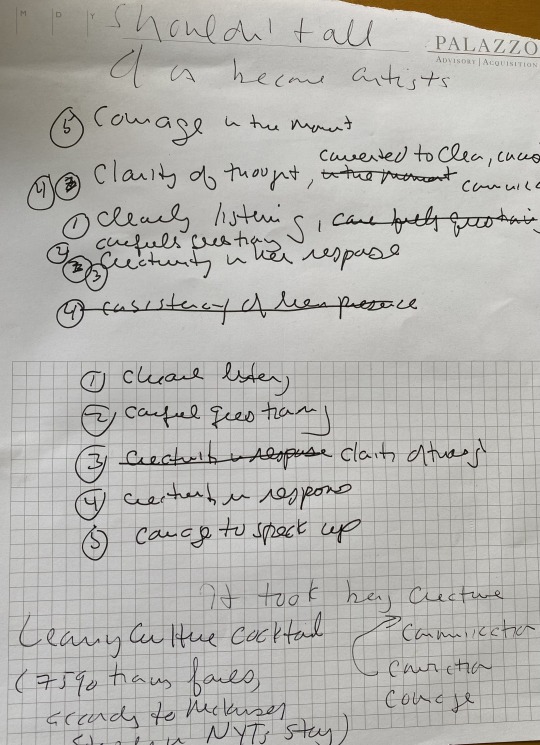 M D Y
Shouldn't all
PALAZZO
ADVISORY | ACQUISITION
of us become artists
⑤ Courage in the moment
converted to clear,
④ ③ Clarity of thought, in the moment
① clearly listening,
② careful questioning
② ③ creativity in her response
④ consistency of her presence
①
② careful questioning
③ creativity in response clarity of thought
④ creativity in response
⑤ courage to speak up
It took key creative
Learning Culture Cocktail
Communication
(75% trans fails,
Conviction
according to McKinsey
Courage
Study in NYTs Story)